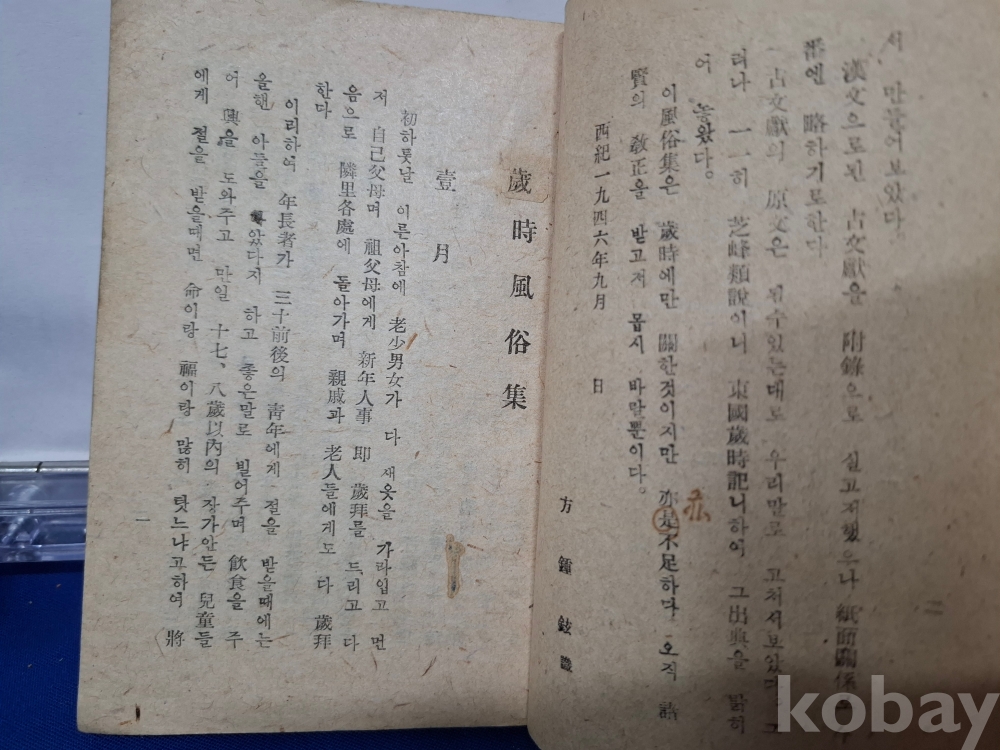 서 만들어보았다.
漢文으로된 古文獻을 附錄으로 실고저했으나 紙面關係로
番엔 略하기로한다
古文獻의 原文은 될수있는대로 우리말로 고처서보았다 그
러나 一一히 芝峰類說이니 東國歲時記니하여 그出典을 밝히
어 놓왔다.
이風俗集은 歲時에만 關한것이지만 亦是不足하다. 오직 諸
賢의 敎正을 받고저 몹시 바랄뿐이다.
西紀一九四六年九月 日
方鍾鉉
二
歲時風俗集
壹月
初하룻날 이른아참에 老少男女가 다 새옷을 가라입고 먼
저 自己父母며 祖父母에게 新年人事 即 歲拜를 드리고 다
음으로 隣里各處에 돌아가며 親戚과 老人들에게도 다 歲拜
한다
이리하여 年長者가 三十前後의 靑年에게 절을 받을때에는
올핸 아들을 낳았다지 하고 좋은말로 빌어주며 飮食을 주
어 興을 도와주고 만일 十七、八歲以內의 장가안든 兒童들
에게 절을 받을때면 命이랑 福이랑 많히 탓느냐고하여 將
一
kobay